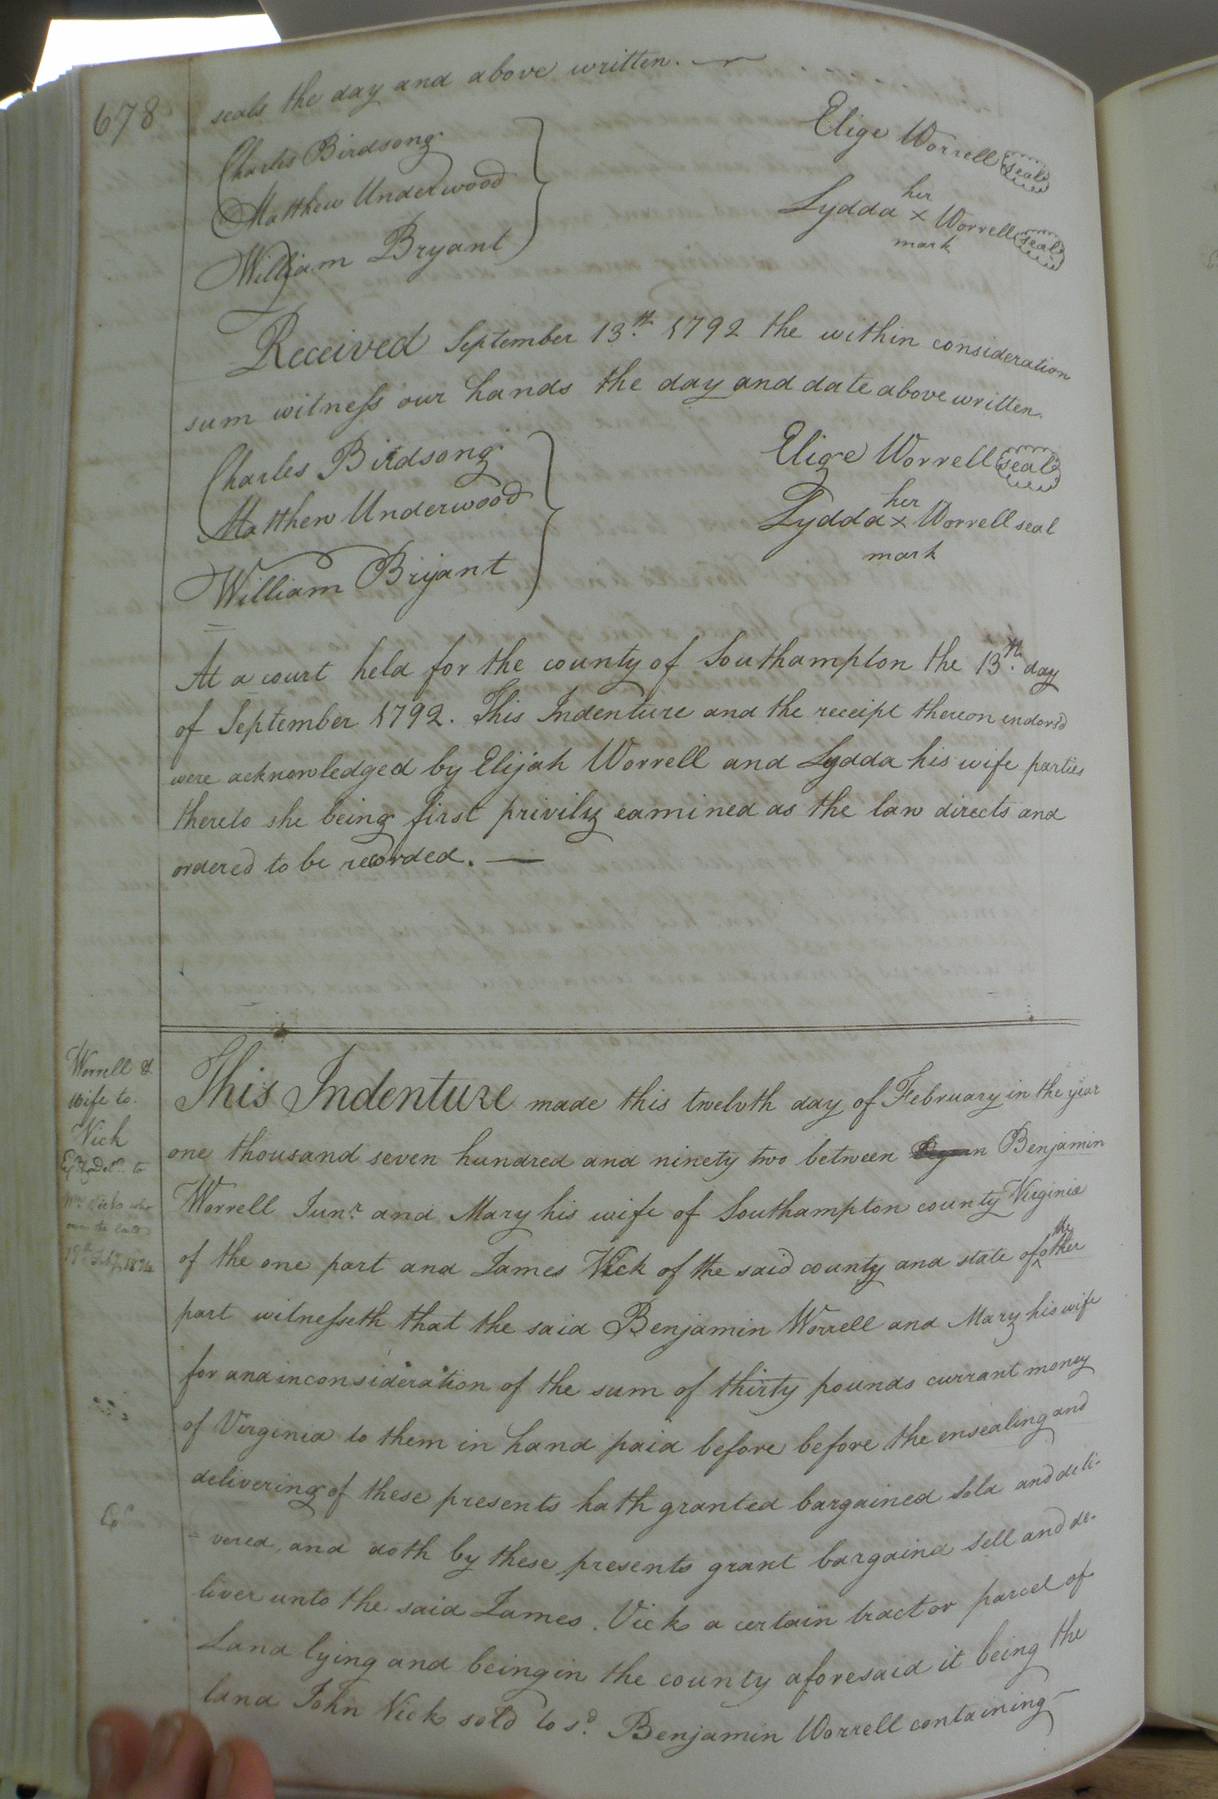 678
seals the day and above written.
Charles Birdsong
Matthew Underwood
William Bryant
Elige Worrell seal
her
Lydda x Worrell seal
mark
Received September 13th 1792 the within consideration
sum witness our hands the day and date above written.
Charles Birdsong
Matthew Underwood
William Bryant
Elige Worrell seal
her
Lydda x Worrell seal
mark
At a court held for the county of Southampton the 13th day
of September 1792. This Indenture and the receipt thereon endorsd
were acknowledged by Elijah Worrell and Lydda his wife parties
thereto she being first privily eamined as the law directs and
ordered to be recorded.
Worrell &
wife to
Vick
to
19th Feby 1824
This Indenture made this twelvth day of February in the year
one thousand seven hundred and ninety two between Benjamin
Worrell Junr and Mary his wife of Southampton county Virginia
of the one part and James Vick of the said county and state of the other
part witnesseth that the said Benjamin Worrell and Mary his wife
for and in consideration of the sum of thirty pounds currant money
of Virginia to them in hand paid before before the ensealing and
delivering of these presents hath granted bargained sold and deli-
= vered, and doth by these presents grant bargaind sell and de-
liver unto the said James Vick a certain tract or parcel of
Land lying and being in the county aforesaid it being the
land John Vick sold to sd. Benjamin Worrell containing